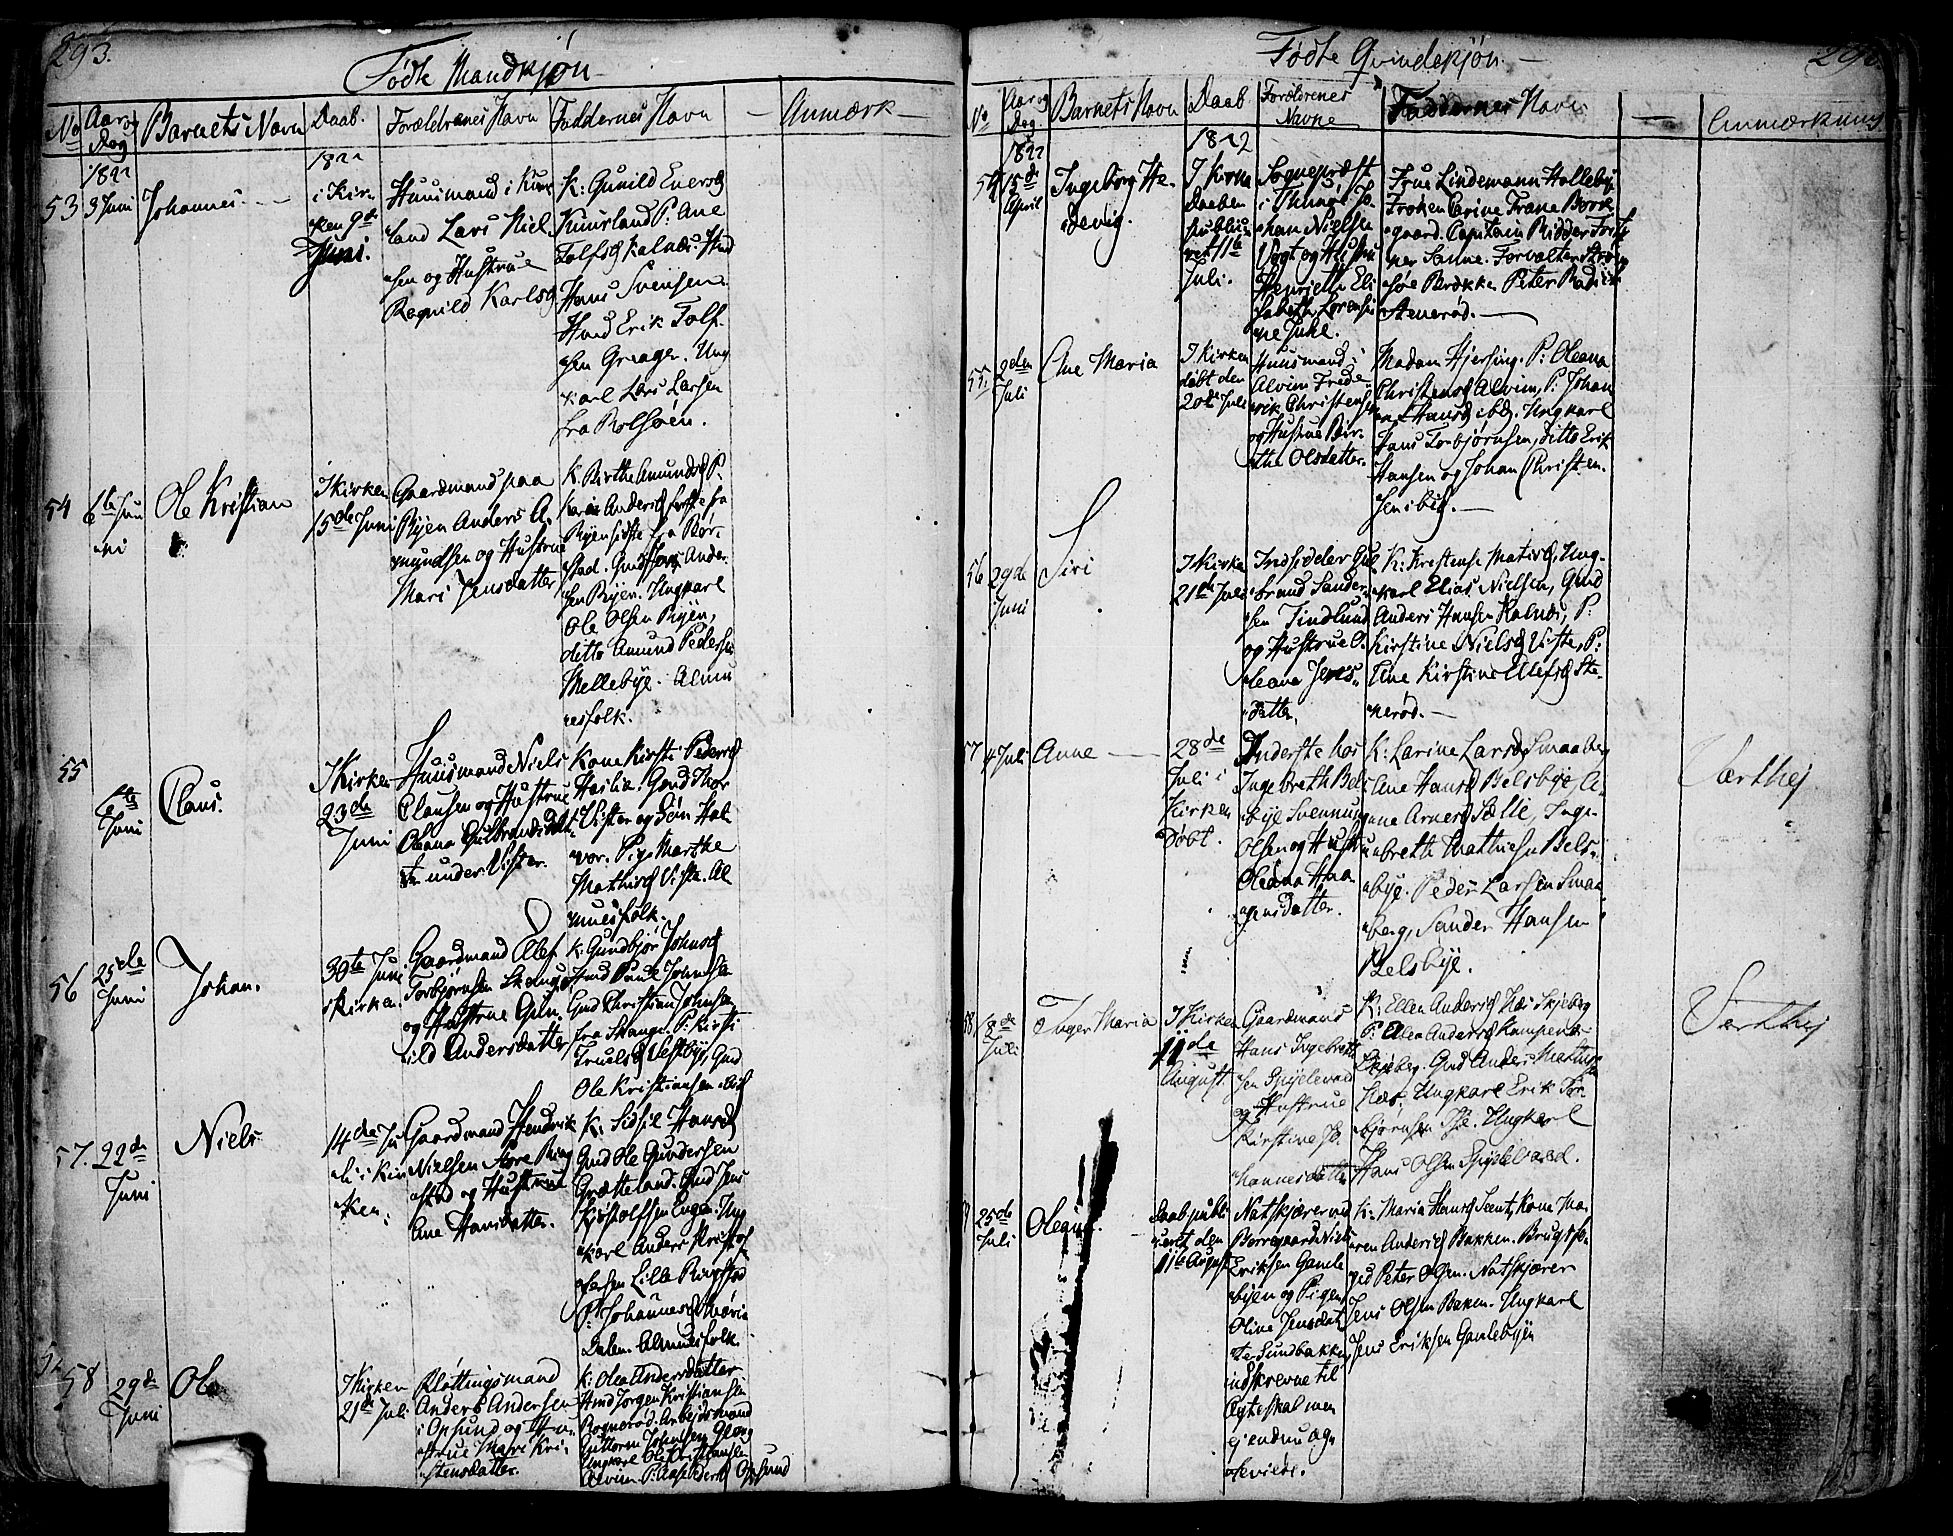 293.
Födte Mandkjön
No
Aar og Dag
Barnets Navn
Daab.
Forældrenes Navn
Faddernes Navn
Anmærk
1822
1822
53
3 Juni
Johannes.
i Kir-
ken 9de
Juni.
Huusmand i Kuur
land Lars Niel
sen og Hustrue
Regnild Karlsd
K: Gunild Eversd
Kuurland P: Ane
Tolfsd Kalnæs. Gmd
Hans Svensen.
Gmd Erik Tolf-
sen Graager. Ung
karl Lars Larsen
fra Rolfsøen.
54
6te Juni
Ole Kristian
I Kirken
15de Juni
Gaardmand paa
Ryen Anders A-
mundsen og Hustrue
Mari Jensdatter
K. Birthe Amundsd P:
Karen Andersd første fra
Ryen sidste fra Bør-
stad. Gmd Hans Ander
sen Ryen. Ungkarl
Ole Olsen Ryen,
ditto Amund Pedersen
Mellebye. Almu
esfolk.
55
6te
Juni
Claus.
I Kirken
23de
Juni
Huusmand Niels
Clausen og Hustrue
Oleana Gulbrandsdat-
ter under Vister.
Kone Kirsti Pedersd
Haslie. Gmd Thor
Vister og Søn Hal
vor. Pige Marthe
Mathisd Viste. Al
muesfolk.
56
25de
Juni
Johan.
30te Juni
i Kirken.
Gaardmand Ellef
Torbjørnsen Skange
og Hustrue Gun-
ild Andersdatter
K: Gundbjør Johnsd
Gmd Poul Johnsen
Gmd Christian Johnsen
fra Skange. P: Kirsti
Truelsd Vestbye, Gmd
Ole Kristiansen ibid
57.
22de
Juni
Niels
14de Ju
li i Kir
ken.
Gaardmand Hendrik
Nielsen Store Ring
stad og Hustrue
Ane Hansdatter.
K: Sidsil Hansd
Gmd Ole Gundersen
Grætteland. Gmd Jens
Kjostolfsen Engen. Ung
karl Anders Kristof
fersen Lille Ringstad
P: Johannesd Maria
Dalen. Almuesfolk.
58
29de
Juni
Ole
I Kirken
21de Juli
Pløttingsmand
Anders Andersen
i Opsund og Hu-
strue Mari Kri-
stensdatter.
K: Olea Andersdatter
Gmd Jørgen Kristiansen
Rognerød. Arbeidsmand
Guttorm Johnsen Glæng
Ungkarl Ole Kristiansen
Alvim. P: Aase Pedersd Opsund
Födte Qvindekjön.
No
Aar og Dag
Barnets Navn
Daab
Forældrenes Navne
Faddernes Navne
Anmærkning
1822
1822
54
15de
April
Ingeborg He-
devig.
I Kirken
Daaben
publice-
ret 11te
Juli.
Sognepræst
i Thunø Jo-
han Nielsen
Vogt og Hustrue
Henriette Eli
sabeth Lorensi
ne Juhl.
Frue Lindemann Halleby
Frøken Carine Frane Bork
gaard. Capitain Ridder Fort
ner Sanne. Forvalter Strøm
søe Brekke. Peter Radich
Stenerød.
55.
2den
Juli
Ane Maria
I Kirken
døbt den
20de Juli
Huusmand i
Alvim Frede-
rik Christensen
og Hustrue Bir-
the Olsdatter.
Madam Hjersing. P: Oleana
Christensd Alvim, P: Johan
na Hansd ibd. Ungkarl
Hans Torbjørnsen, ditto Erik
Hansen og Johan Christen-
sen ibid.
56
29de
Juni
Siri
I Kirken
21de Juli
Indsidder Gul
brand Sander-
sen Tindlund
og Hustrue O-
leana Jens-
datter.
K: Kristense Matisd, Ung-
karl Elias Nielsen, Gmd
Anders Hansen Kalnæs, P:
Kirstine Nielsd Viste, P:
Ane Kirstine Ellefsd Ste-
nerød.
57
4 Juli
Anne
28de
Juli i
Kirken
Døbt.
Inderste hos
Ingebreth Bels-
bye Svennung
Olsen og Hustrue
Oleana Haa-
gensdatter.
K: Larine Larsd Smaaberg
Ane Hansd Belsbye, A-
ne Arnesd Sælle, Inge-
breth Mathiesen Bels-
bye. Peder Larsen Smaa
berg, Sander Hansen
Belsbye.
Særthej
58.
8de
Juli
Inger Maria
I Kirken
11de
August
Gaardmand
Hans Ingebreth
sen Spydevold
og Hustrue
Kirstine Jo-
hannesdatter
K: Ellen Andersd Næs Skjeberg
P: Elen Andersd Kampenes
Skjeberg. Gmd Anders Matisen
Næs. Ungkarl Erik Tor-
bjørnsen Thse. Ungkarl
Hans Olsen Spydevold.
Særthej
25de
Juli
Oleana
Daab publi-
ceret den
11te August
Natskjærer ved
Borregaard Niels
Eriksen Gamle
byen og Pigen
Oline Jensdat
ter Sundbakken
indskrevne til
Ægteskab men
ej endnu ag-
tevied.
K: Maria Hansd Sent, Kone Ma-
ren Andersd Bakken. Brugsfo-
ged Peter Olsen. Natskjærer
Jens Olsen Baken. Ungkarl
Jens Eriksen Gamlebyen